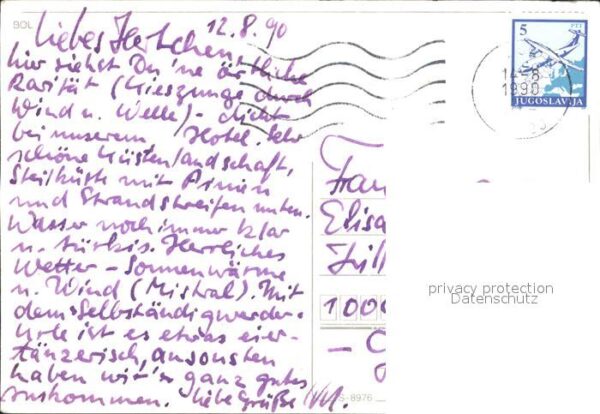 BOL
12.8.90
Liebes Hertchen,
hier siehst Du 'ne örtliche
Rarität (Kieszunge durch
Wind u. Welle) - dicht
bei unserem Hotel. Sehr
schöne Küstenlandschaft,
Steilküste mit Pinien
und Strandstreifen unten.
Wasser noch immer klar
u. türkis. Herrliches
Wetter - Sonnenwärme
u. Wind (Mistral). Mit
dem "Selbständigwerder-
Kole ist es etwas eier-
tänzerisch, ansonsten
haben wir's ganz gutes
auskommen. Liebe Grüße
5 PTT
JUGOSLAVIJA
14-8
1990
Frau
Elisa
1000
- C
S-8976
privacy protection
Datenschutz